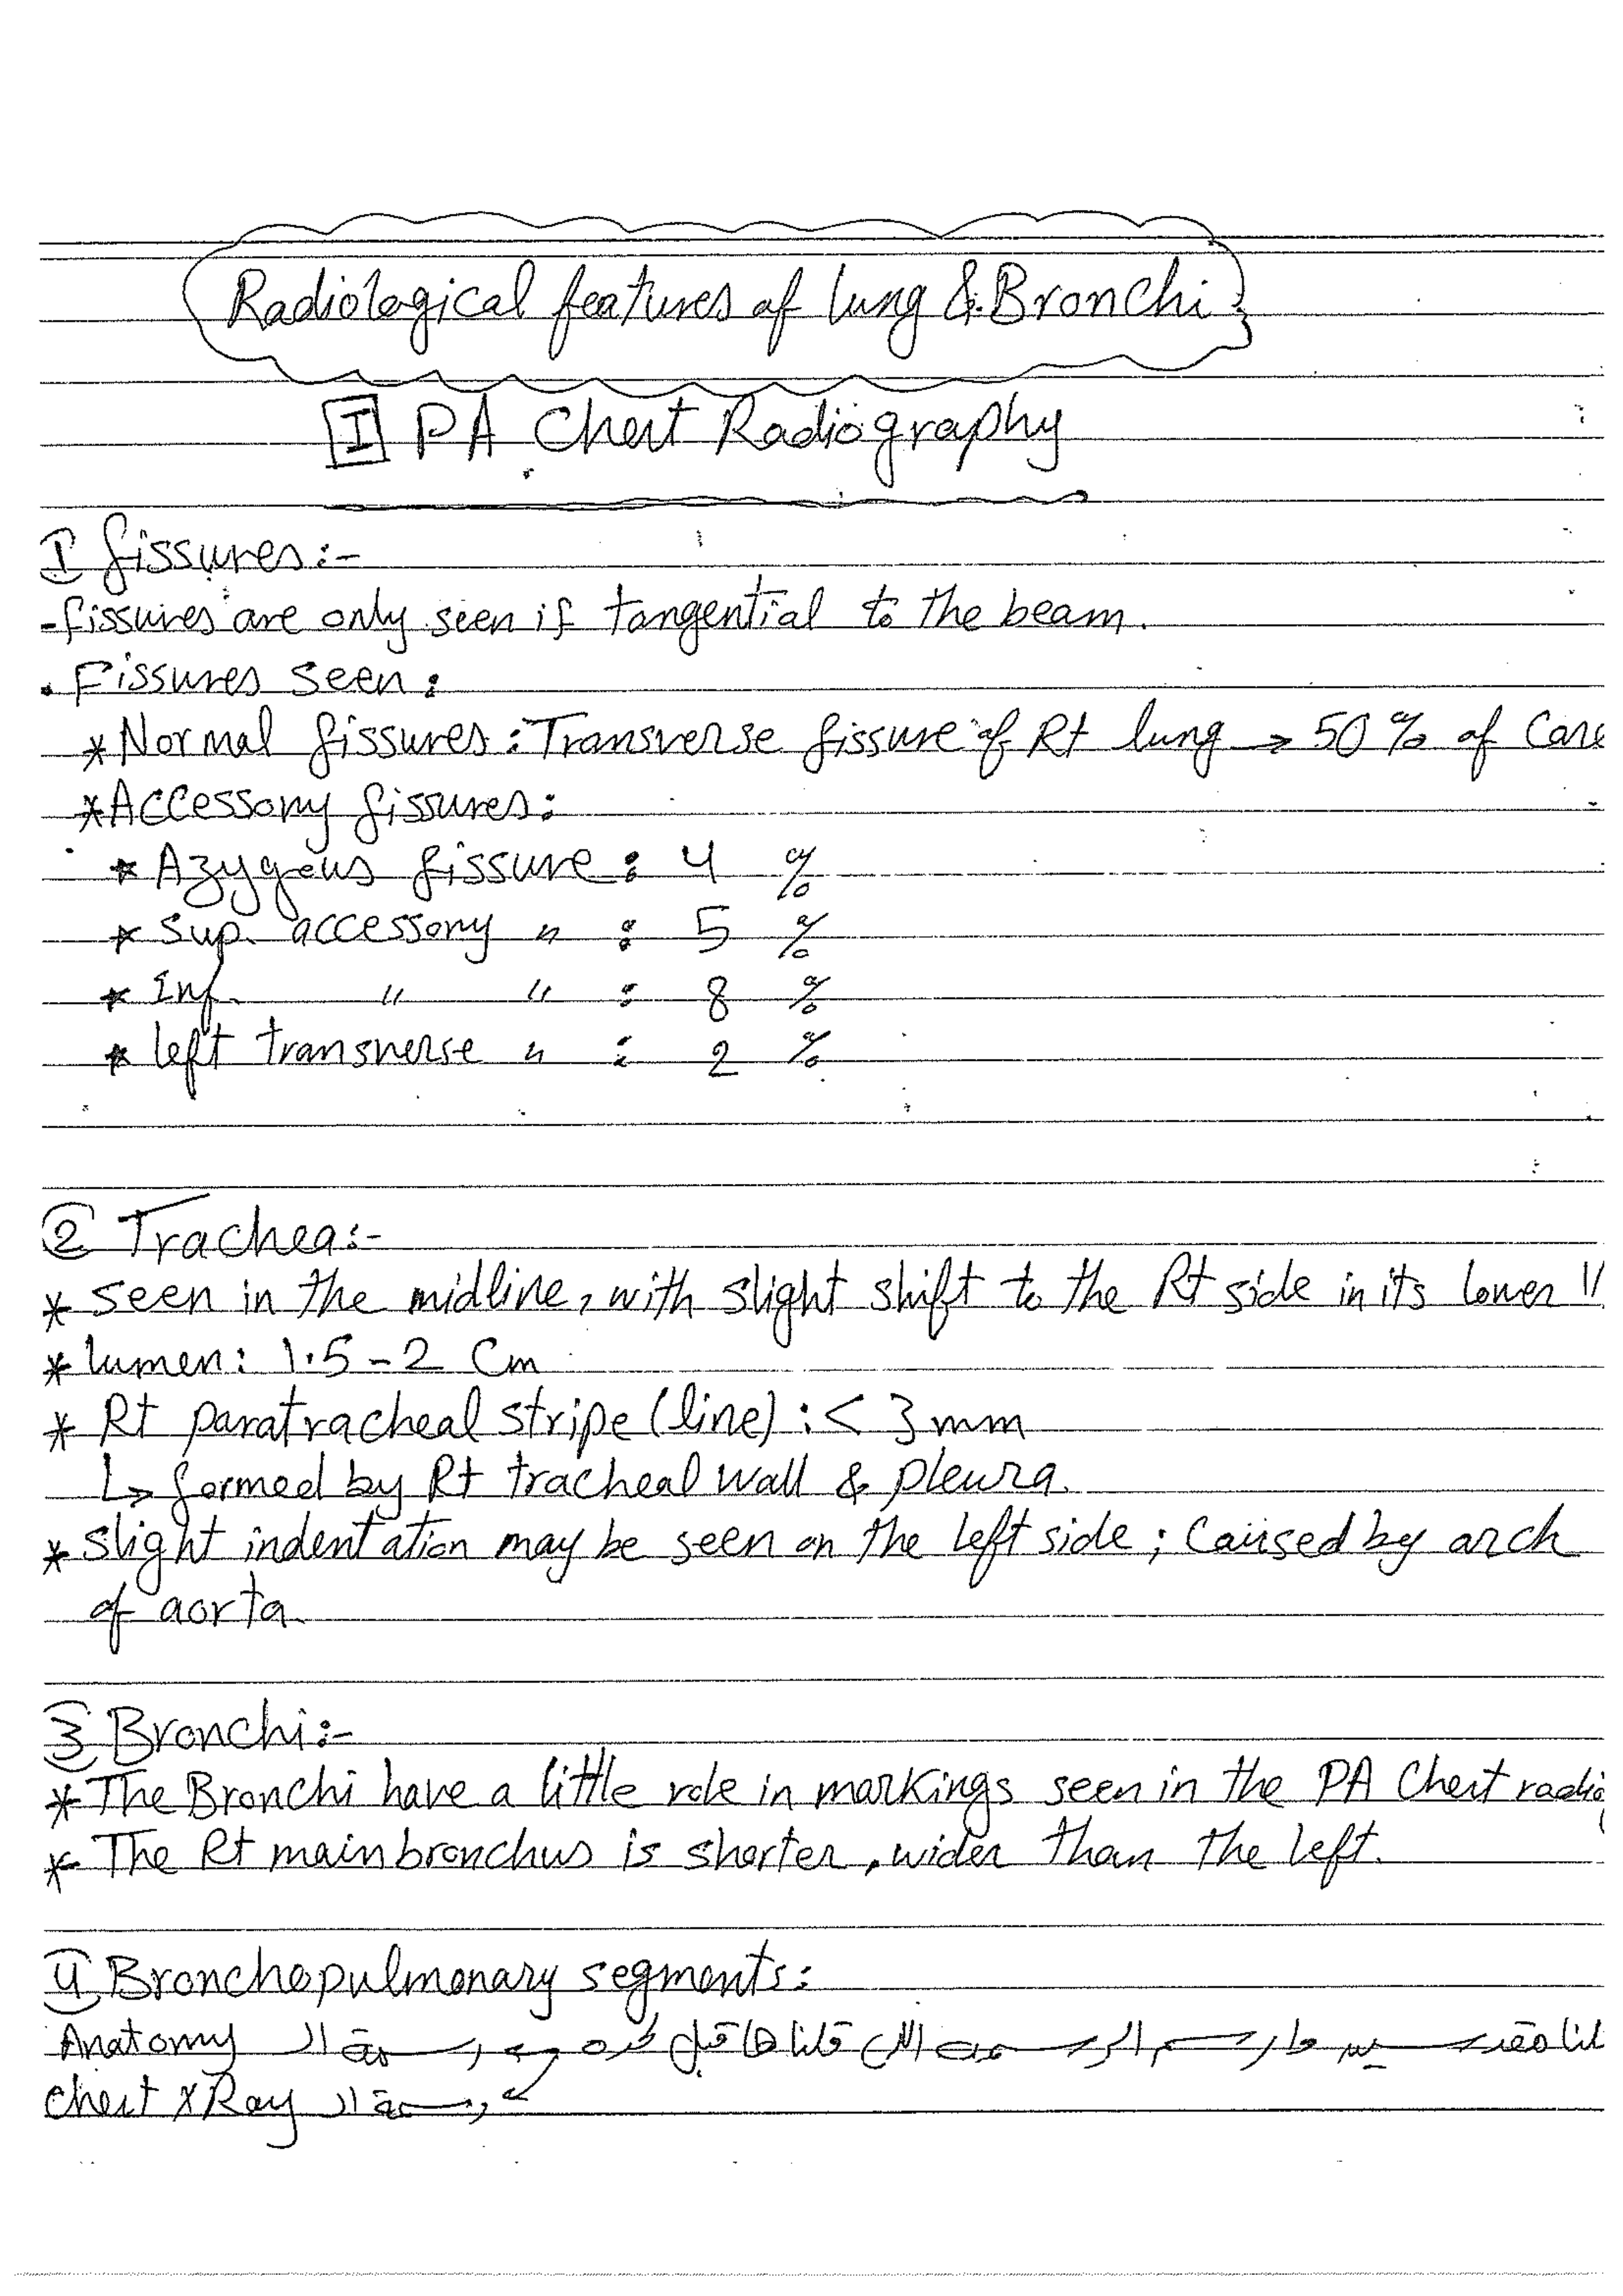 Radiological features of lung & Bronchi
I PA Chest Radiography
1 fissures:-
- fissures are only seen if tangential to the beam.
. Fissures seen:
* Normal fissures: Transverse fissure of Rt lung → 50 % of Case
* Accessory fissures:
* Azygous fissure : 4 %
* Sup. accessory " : 5 %
* Inf. " " : 8 %
* left transverse " : 2 %
2 Trachea:-
* seen in the midline, with slight shift to the Rt side in its lower 1/
* lumen: 1.5 - 2 Cm
* Rt paratracheal stripe (line) : < 3 mm
↳ formed by Rt tracheal wall & pleura.
* Slight indentation may be seen on the left side ; Caused by arch
of aorta.
3 Bronchi:-
* The Bronchi have a little role in markings seen in the PA Chest radiog
* The Rt main bronchus is shorter, wider than the left.
4 Bronchopulmonary segments:
الرسمة اللي قلناها قبل كده رسمة الـ Anatomy
رسمة الـ Chest X Ray